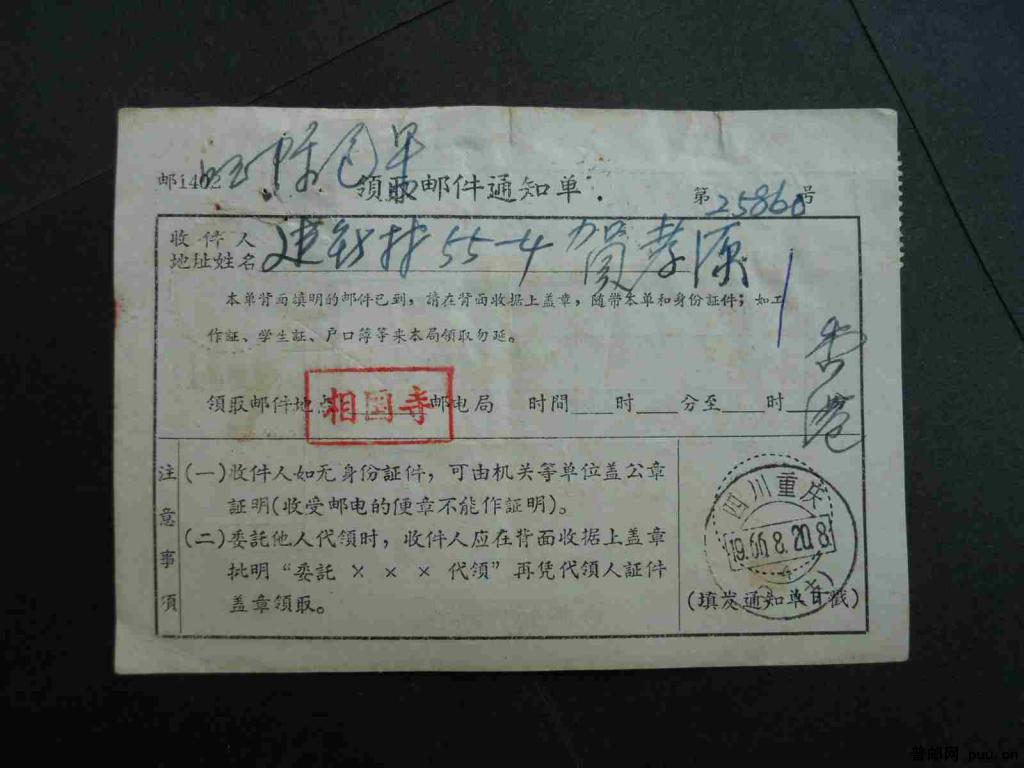 包果
邮1402 領取邮件通知单
第25860号
收件人
地址姓名 建新村55-4 賀孝源
本单背面填明的邮件已到，請在背面收据上盖章，随带本单和身份証件；如工
作証、学生証、户口簿等来本局領取勿延。
香港
領取邮件地点 相国寺 邮电局 时間___时___分至___时
注意事項
(一)收件人如无身份証件，可由机关等单位盖公章
証明(收受邮电的便章不能作証明)。
(二)委託他人代領时，收件人应在背面收据上盖章
批明“委託×××代領”再凭代領人証件
盖章領取。
四川重庆
1966.8.20.8
(填发通知单日戳)
普邮网 puu.cn